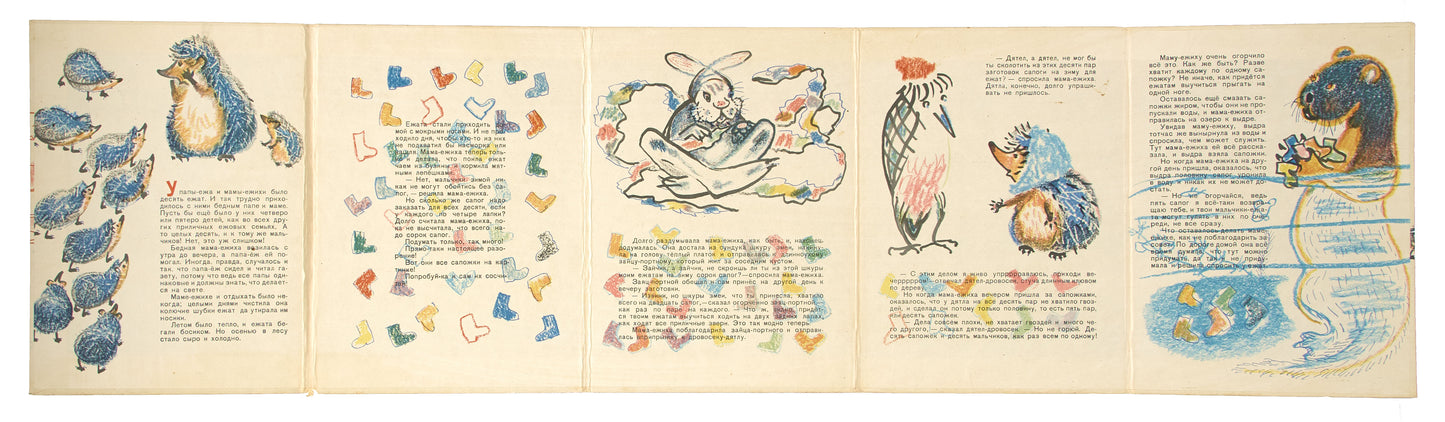 У папы-ежа и мамы-ежихи было
десять ежат. И так трудно прихо-
дилось с ними бедным папе и маме.
Пусть бы ещё было у них четверо
или пятеро детей, как во всех дру-
гих приличных ежовых семьях. А
то целых десять, и к тому же маль-
чиков! Нет, это уж слишком!
Бедная мама-ежиха возилась с
утра до вечера, а папа-ёж ей по-
могал. Иногда, правда, случалось и
так, что папа-ёж сидел и читал га-
зету, потому что ведь все папы оди-
наковые и должны знать, что делает-
ся на свете.
Маме-ежихе и отдыхать было не-
когда; целыми днями чистила она
колючие шубки ежат да утирала им
носики.
Летом было тепло, и ежата бе-
гали босиком. Но осенью в лесу
стало сыро и холодно.
Ежата стали приходить до-
мой с мокрыми носами. И не про-
ходило дня, чтобы кто-то из них
не подхватил бы насморка или
кашля. Мама-ежиха теперь толь-
ко и делала, что поила ежат
чаем из бузины и кормила мят-
ными лепёшками.
— Нет, мальчики зимой ни-
как не могут обойтись без са-
пог, — решила мама-ежиха.
Но сколько же сапог надо
заказать для всех десяти, если
у каждого по четыре лапки?
Долго считала мама-ежиха, по-
ка не высчитала, что всего на-
до сорок сапог.
Подумать только, так много!
Прямо-таки настоящее разо-
рение!
Вот они все сапожки на кар-
тинке!
Попробуй-ка сам их сосчи-
тай!
Долго раздумывала мама-ежиха, как быть, и, наконец,
додумалась. Она достала из сундука шкуру змеи, накину-
ла на голову тёплый платок и отправилась к длинноухому
зайцу-портному, который жил за соседним кустом.
— Зайчик, зайчик, не скроишь ли ты из этой шкуры
моим ежатам на зиму сорок сапог? — спросила мама-ежиха.
Заяц-портной обещал и сам принёс на другой день к
вечеру заготовки.
— Извини, но шкуры змеи, что ты принесла, хватило
всего на двадцать сапог, — сказал огорченно заяц-портной, —
как раз по паре на каждого. — Что ж, видно, придёт-
ся твоим ежатам выучиться ходить на двух задних лапах,
как ходят все приличные звери. Это так модно теперь!
Мама-ежиха поблагодарила зайца-портного и отправи-
лась вприпрыжку к дровосеку-дятлу.
— Дятел, а дятел, не мог бы
ты сколотить из этих десяти пар
заготовок сапоги на зиму для
ежат? — спросила мама-ежиха.
Дятла, конечно, долго упраши-
вать не пришлось.
— С этим делом я живо упррррравлюсь, приходи ве-
черррром! — отвечал дятел-дровосек, стуча длинным клювом
по дереву.
Но когда мама-ежиха вечером пришла за сапожками,
оказалось, что у дятла на все десять пар не хватило гвоз-
дей, и сделал он потому только половину, то есть пять пар,
или десять сапожек.
— Дела совсем плохи, не хватает гвоздей и много че-
го другого, — сказал дятел-дровосек. — Но не горюй. Де-
сять сапожек и десять мальчиков, как раз всем по одному!
Маму-ежиху очень огорчило
всё это. Как же быть? Разве
хватит каждому по одному са-
пожку? Не иначе, как придётся
ежатам выучиться прыгать на
одной ноге.
Оставалось ещё смазать са-
пожки жиром, чтобы они не про-
пускали воды, и мама-ежиха от-
правилась на озеро к выдре.
Увидав маму-ежиху, выдра
тотчас же вынырнула из воды и
спросила, чем может служить.
Тут мама-ежиха ей всё расска-
зала, и выдра взяла сапожки.
Но когда мама-ежиха на дру-
гой день пришла, оказалось, что
выдра половину сапог уронила
в воду и никак их не может до-
стать.
— Но не огорчайся, ведь
пять сапог я всё-таки возвра-
щаю тебе, и твои мальчики-ежа-
та могут гулять в них по оче-
реди, не все сразу.
Что оставалось делать маме-
ежихе, как не поблагодарить за
совет! По дороге домой она всё
время думала, что тут можно
придумать, да так и не приду-
мала и решила спросить у ежат.